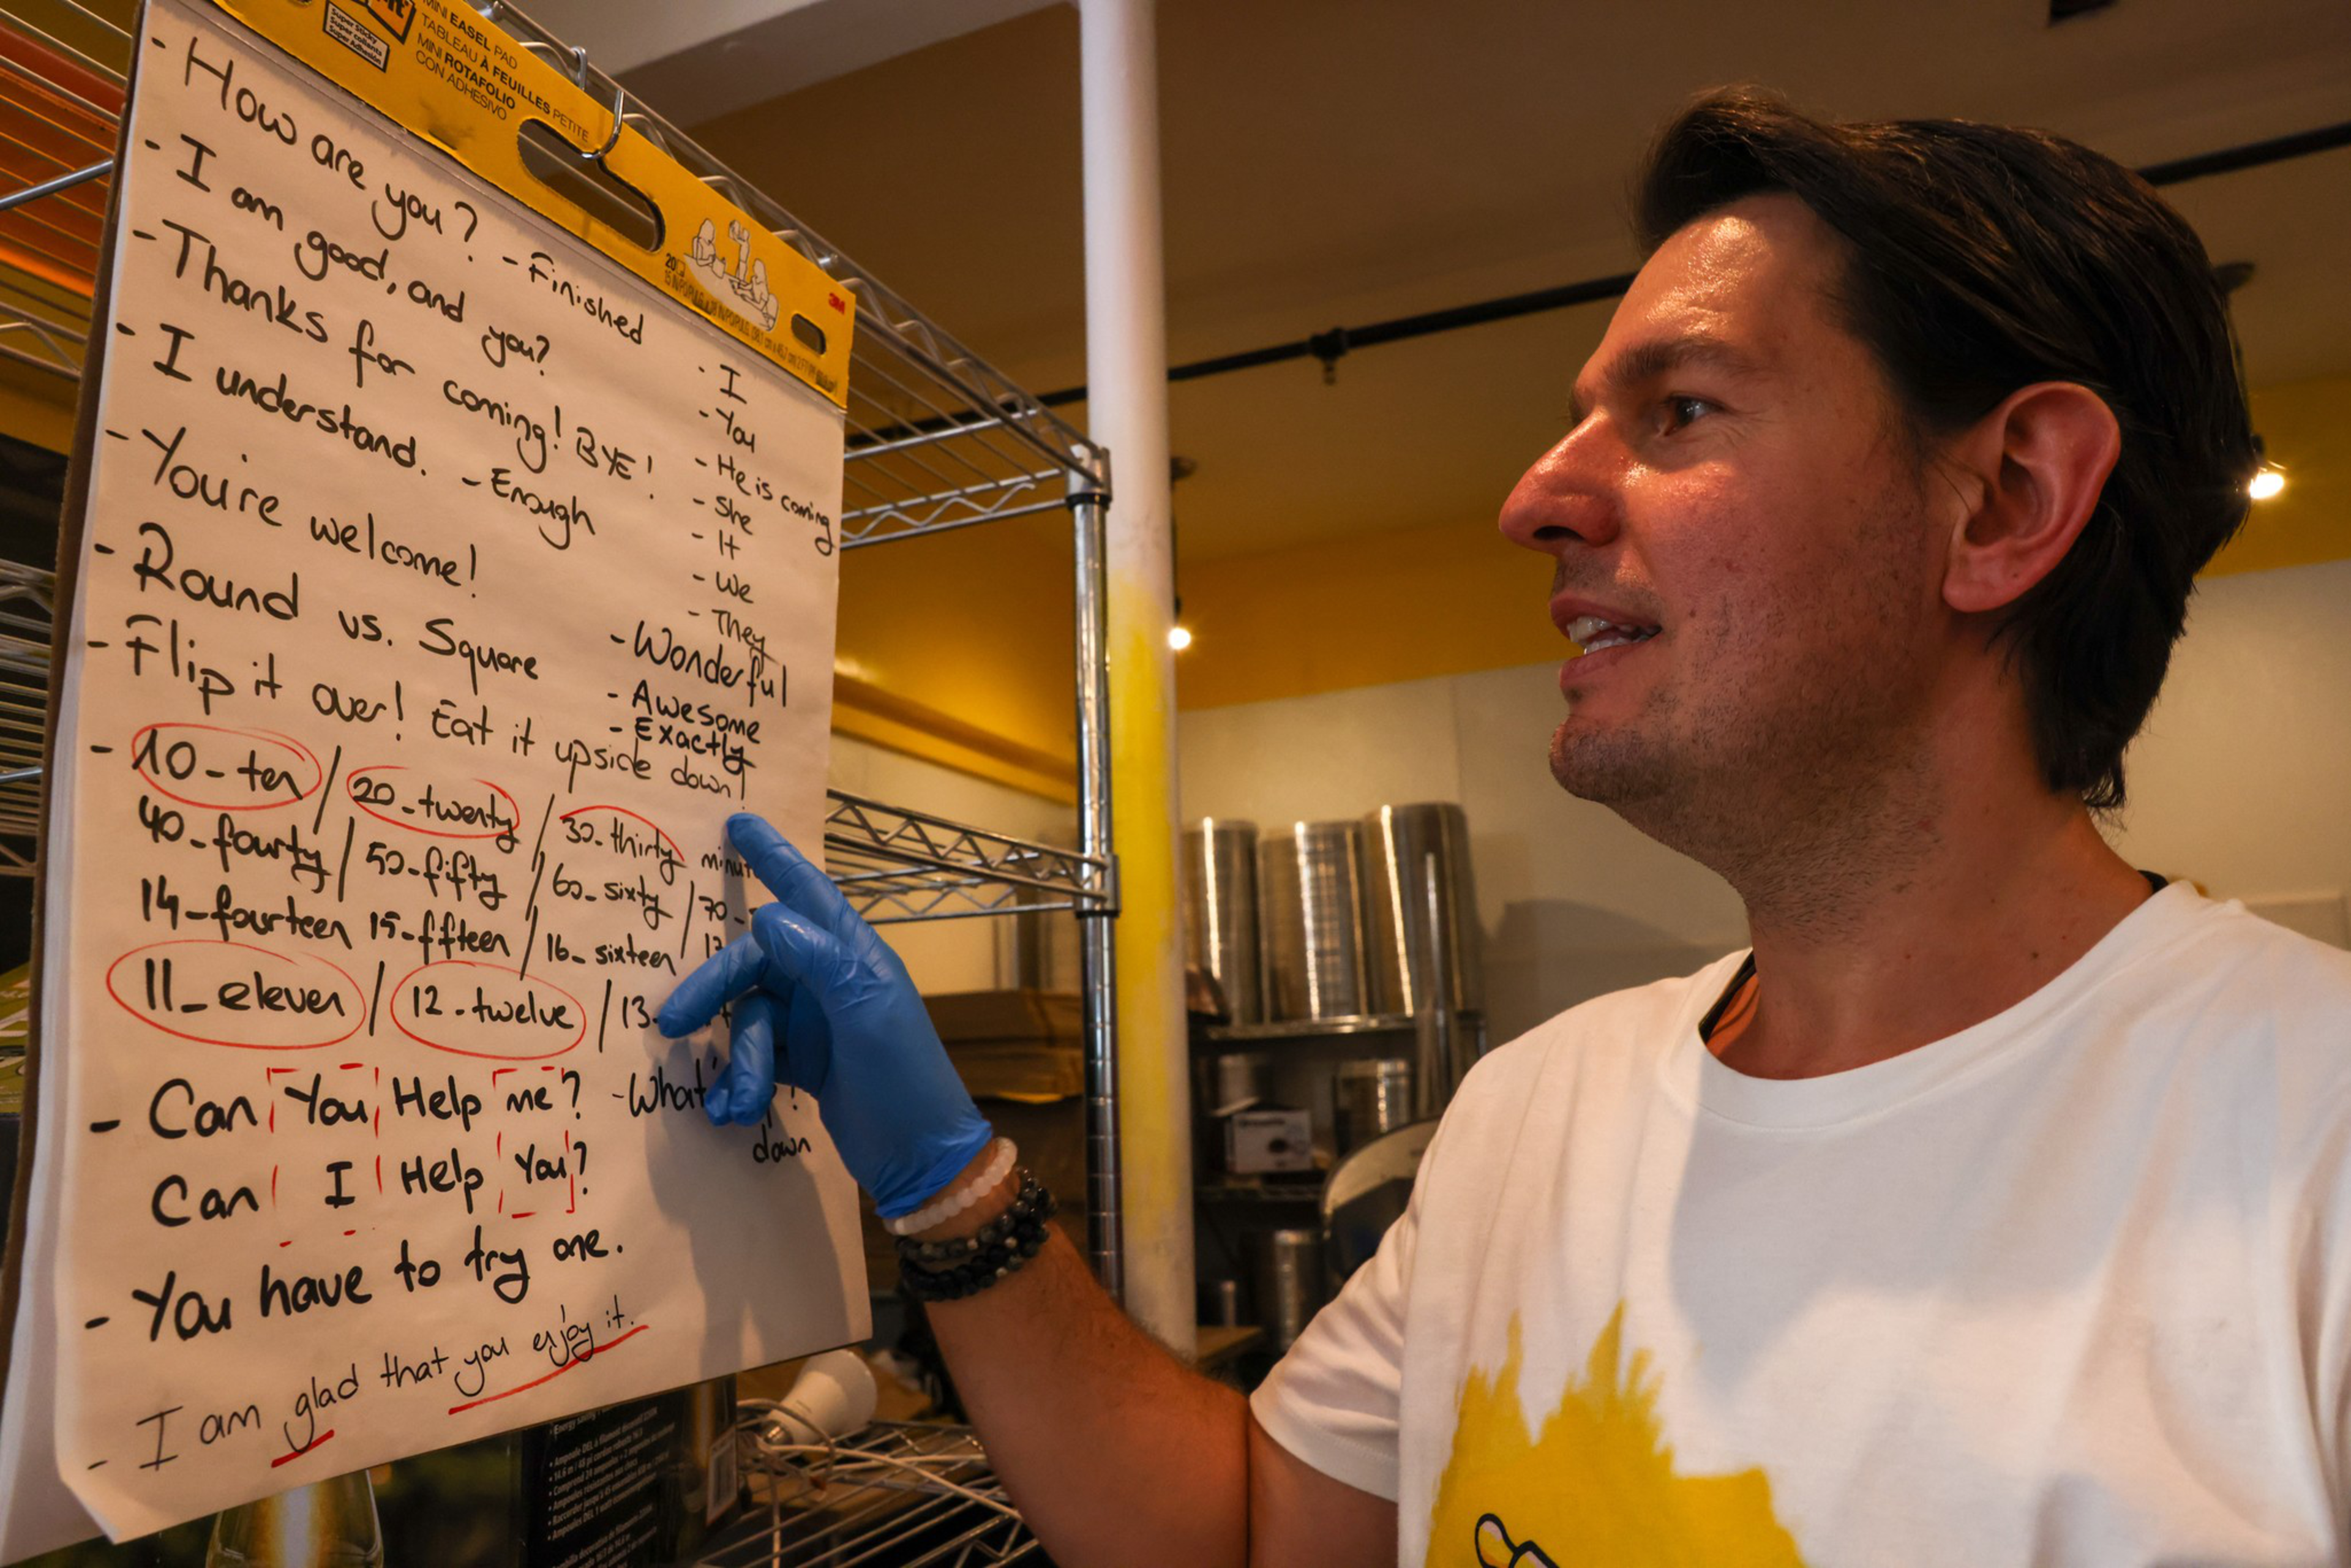 Super Sticky
Super collante
Super Adhesión
MINI EASEL PAD
TABLEAU À FEUILLES PETITE
MINI ROTAFOLIO
CON ADHESIVO
20
3M
- How are you? - Finished
- I am good, and you?
- Thanks for coming! BYE!
- I understand. - Enough
- You're welcome!
- Round vs. Square
- Flip it over! Eat it upside down!
- I
- You
- He is coming
- She
- It
- We
- They
- Wonderful
- Awesome
- Exactly
- 10 - ten / 20 - twenty / 30 - thirty
40 - fourty / 50 - fifty / 60 - sixty / 70 -
14 - fourteen 15 - ffteen / 16 - sixteen /
11 - eleven / 12 - twelve / 13 -
- Can You Help me? - What'
down
Can I Help You?
- You have to try one.
- I am glad that you enjoy it.